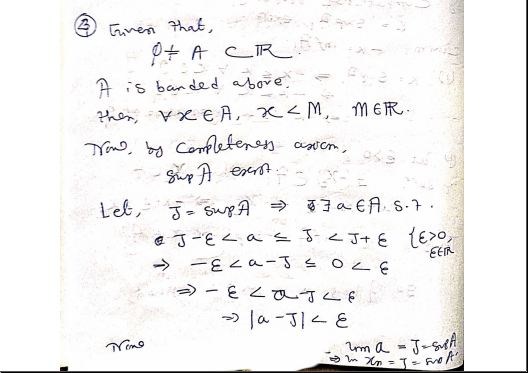 Given that,
φ ≠ A ⊂ ℝ.
A is banded above.
then, ∀ x ∈ A, x < M, M ∈ ℝ.
Now, by completeness axiom,
sup A exist.
Let, J = sup A ⇒ ∃ a ∈ A s.t.
J - ε < a ≤ J < J + ε {ε > 0, ε ∈ ℝ
⇒ - ε < a - J ≤ 0 < ε
⇒ - ε < a - J < ε
⇒ |a - J| < ε
Now
a = J = sup A
⇒ xn = J = sup A